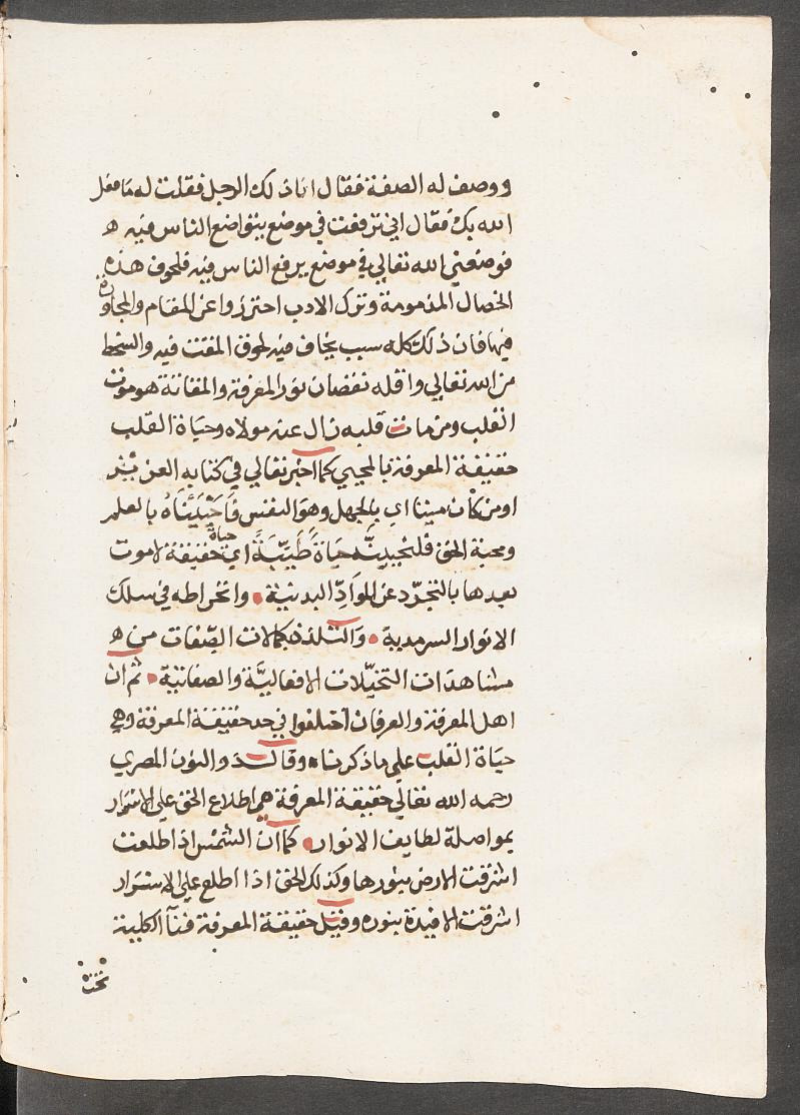 ووصف له الصفة فقال انا ذلك الرجل فقلت له ما فعل
الله بك فقال اني ترفعت في موضع يتواضع الناس فيه ه
فوضعني الله تعالي في موضع يرفع الناس فيه فلخوف هذه
الخصال المذمومة وترك الادب احترزوا عن المقام والمجاورة
فيها فان ذلك كله سبب يخاف منه لحوق المقت فيه والسخط
من الله تعالي واقله نقصان نور المعرفة والمقاتة هو موت
القلب ومن مات قلبه زال عنه مولاه وحياة القلب
حقيقة المعرفة بالمحيي كما اخبر تعالي في كتابه العزيز
اومن كان ميتا اي بالجهل وهوا النفس فَاَحْيَيْنَاهُ بالعلم
ومحبة الحق فلنحيينّه حَيَاةً طَيِّبَةً اي حياة حقيقة لا موت
بعدها بالتجرّد عن الموادِّ البدنيّة وانخراطه في سلك
الانوار السرمدية والتلذذ بكمالات الصِّفات من ه
مشاهدات التخيّلات الافعاليَّة والصفاتيّة ثم ان
اهل المعرفة والعرفان اختلفوا في حد حقيقة المعرفة وهي
حيَاة القلب علي ما ذكرناه وقال ذو النون المصري
رحمه الله تعالي حقيقة المعرفة هي اطلاع الحق علي الاسرار
بمواصلة لطايف الانوار كما ان الشمس اذا طلعت
اشرقت الارض بنورها وكذلك الحق اذا اطلع علي الاسرار
اشرقت الافيدة بنوره وقيل حقيقة المعرفة فنآ الكلية
تحت